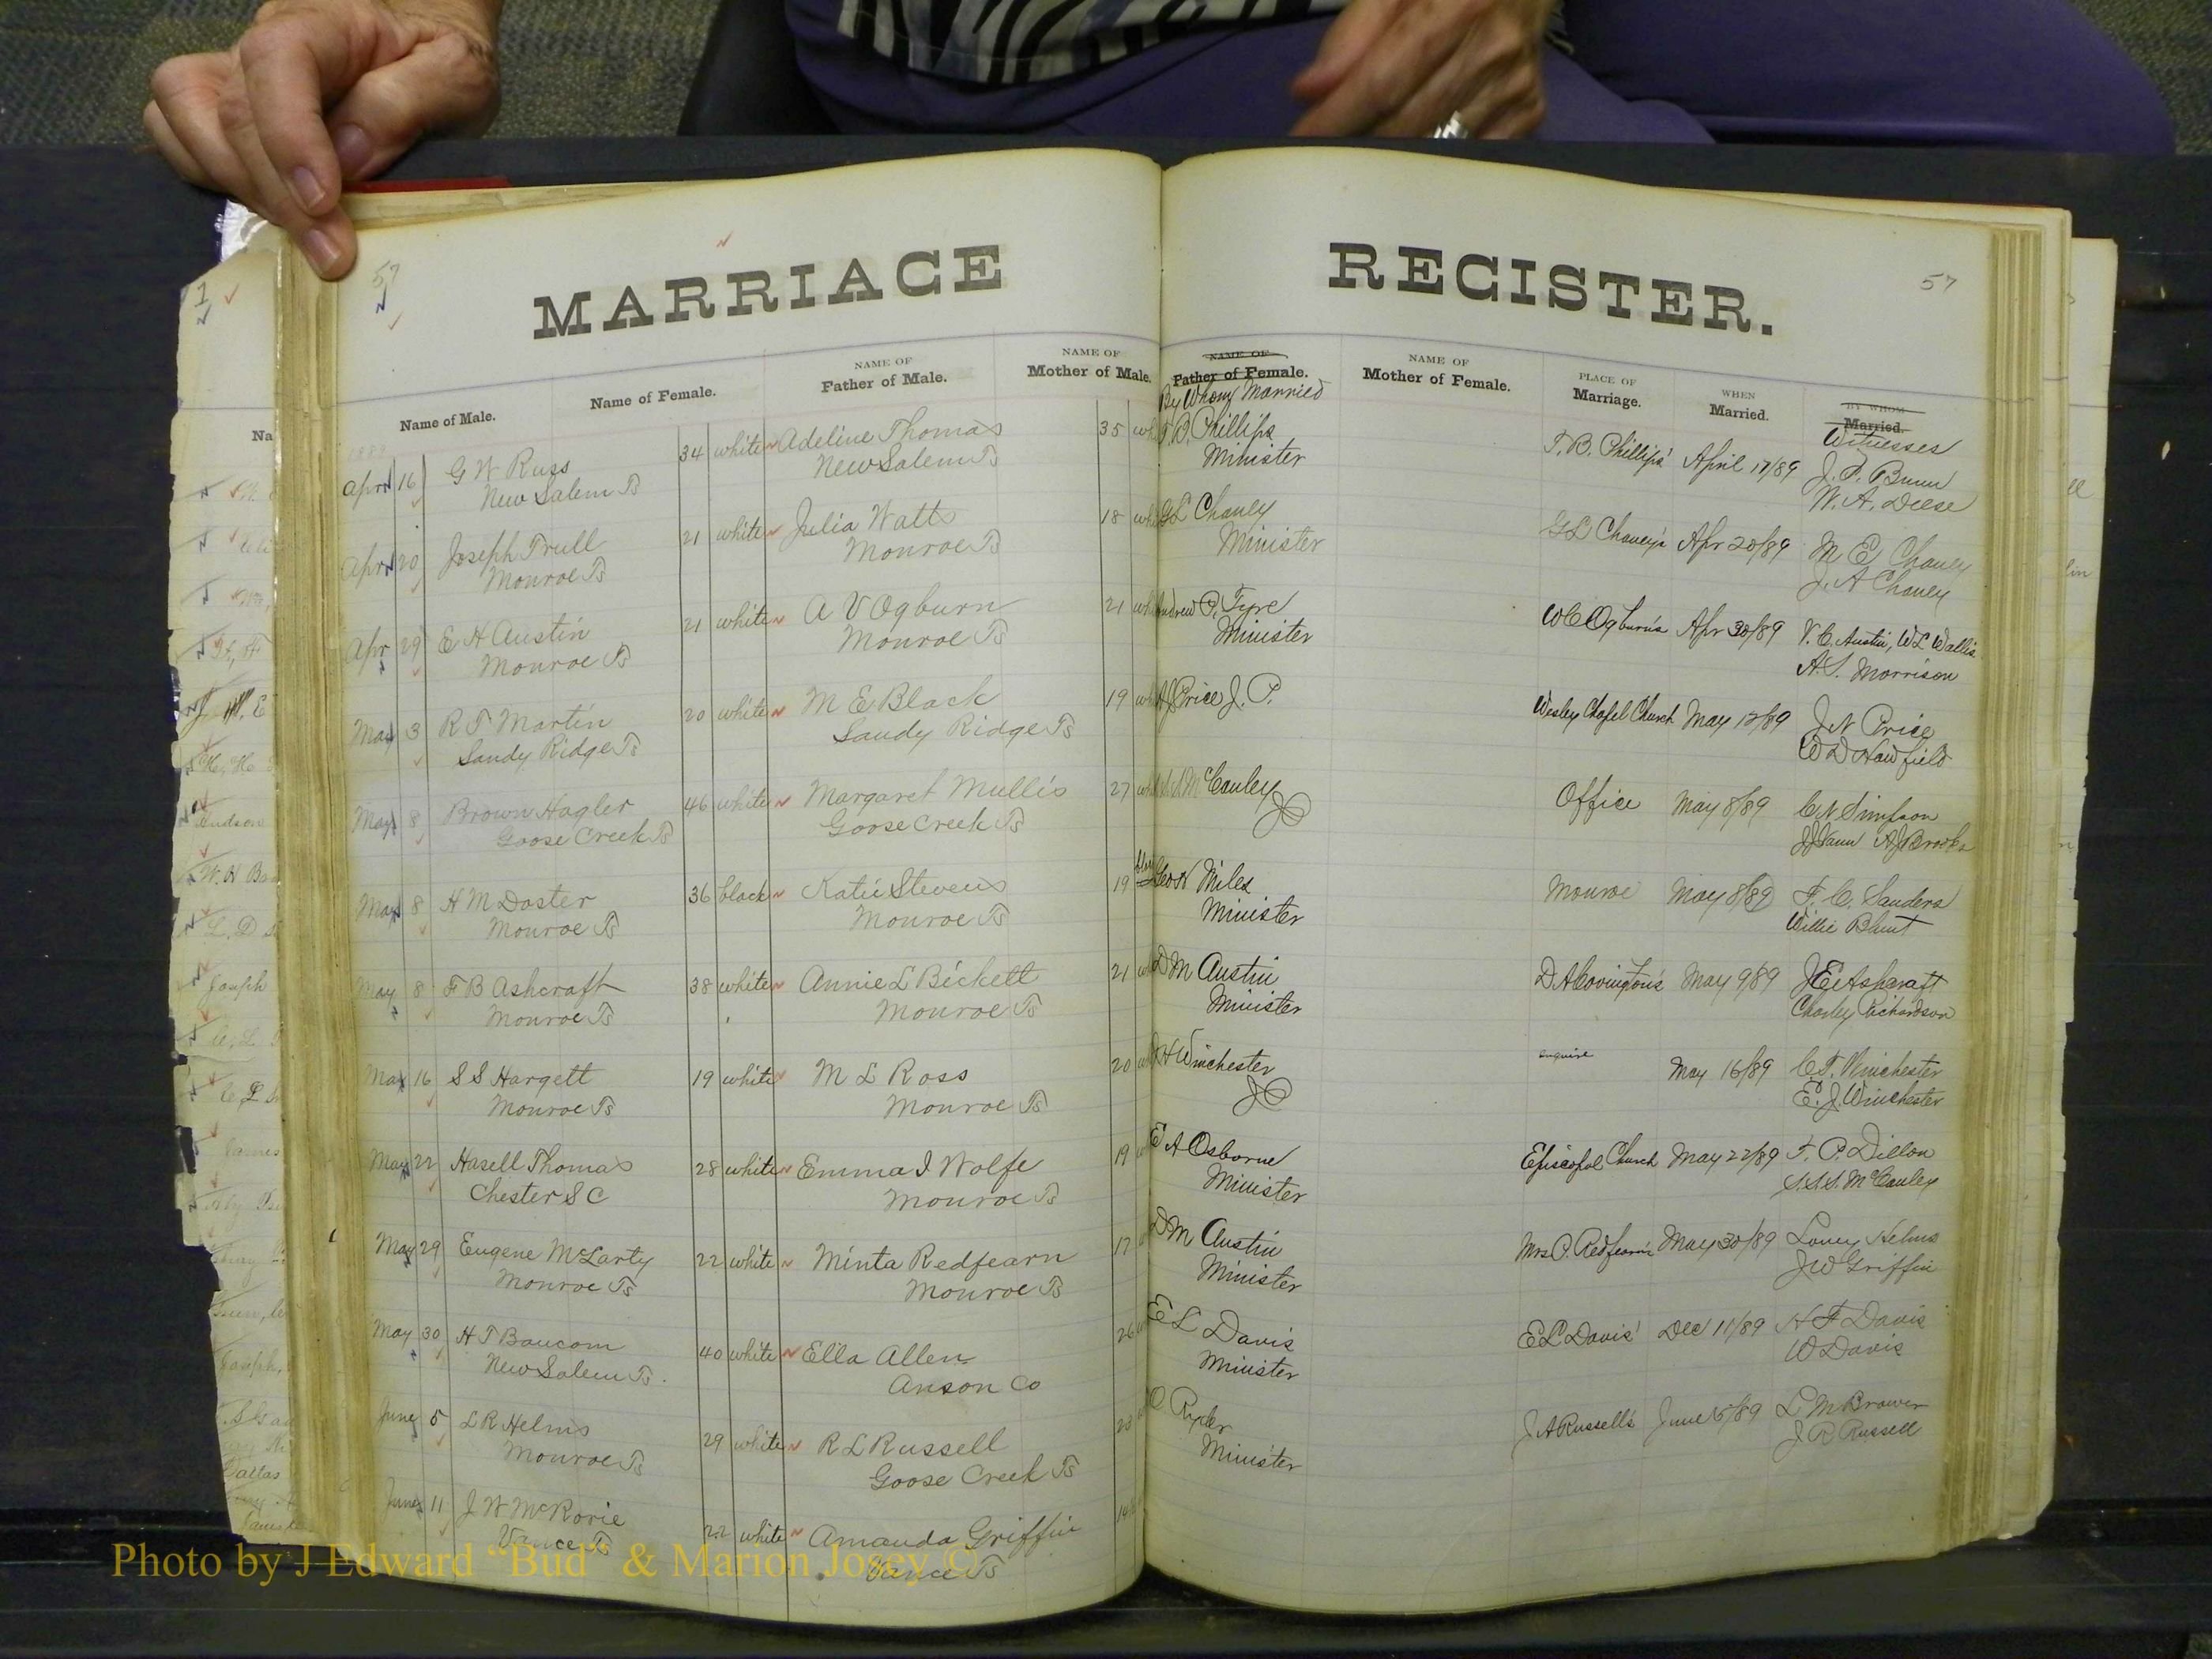 57
MARRIAGE REGISTER.
57
Name of Male.
Name of Female.
NAME OF
Father of Male.
NAME OF
Mother of Male.
NAME OF
Father of Female.
By Whom Married
NAME OF
Mother of Female.
PLACE OF
Marriage.
WHEN
Married.
BY WHOM
Married.
Witnesses
1889
Apr 16 G W Russ 34 white Adeline Thomas 35 T.B. Phillips T.B. Phillips' April 17/89 J.P. Bunn
New Salem Ts New Salem Ts Minister W.A. Deese
Apr 20 Joseph Trull 21 white Julia Watts 18 GL Chaney GL Chaney's Apr 20/89 M E Chaney
Monroe Ts Monroe Ts Minister J.A Chaney
Apr 29 E H Austin 21 white A V Ogburn 21 Andrew P. Tyre WC Ogburn's Apr 30/89 V.C. Austin, WL Wallis
Monroe Ts Monroe Ts Minister A.S. Morrison
May 3 R T Martin 20 white M E Black 19 AJ Price J.P. Wesley Chapel Church May 12/89 J N Price
Sandy Ridge Ts Sandy Ridge Ts W D Hawfield
May 8 Brown Hagler 46 white Margaret Mullis 27 McCauley Office May 8/89 C N Simpson
Goose Creek Ts Goose Creek Ts JP A J Brooks
May 8 H M Doster 36 black Katie Stevens 19 Geo H Miles Monroe May 8/89 F.C. Sanders
Monroe Ts Monroe Ts Minister Willie Blunt
May 8 F B Ashcraft 38 white Annie L Bickett 21 D M Austin D A Covington's May 9/89 J E Ashcraft
Monroe Ts Monroe Ts Minister Charley Richardson
May 16 S S Hargett 19 white M L Ross 20 H Winchester May 16/89 C.T. Winchester
Monroe Ts Monroe Ts JP E.J. Winchester
May 22 Hasell Thomas 28 white Emma I Wolfe 19 E A Osborne Episcopal Church May 22/89 T.P. Dillon
Chester S C Monroe Ts Minister S.S.S. McCauley
May 29 Eugene McLarty 22 white Minta Redfearn 17 D M Austin Mrs C. Redfearn's May 30/89 Loney Helms
Monroe Ts Monroe Ts Minister J W Griffin
May 30 H T Baucom 40 white Ella Allen 26 E L Davis E L Davis' Dec 11/89 H F Davis
New Salem Ts. Anson Co Minister W Davis
June 5 L R Helms 29 white R L Russell 23 J A Russell's June 5/89 L M Brower
Monroe Ts Goose Creek Ts Minister J R Russell
June 11 J W McRorie 22 white Amanda Griffin
Vance Ts Vance Ts
Photo by J Edward “Bud” & Marion Josey ©